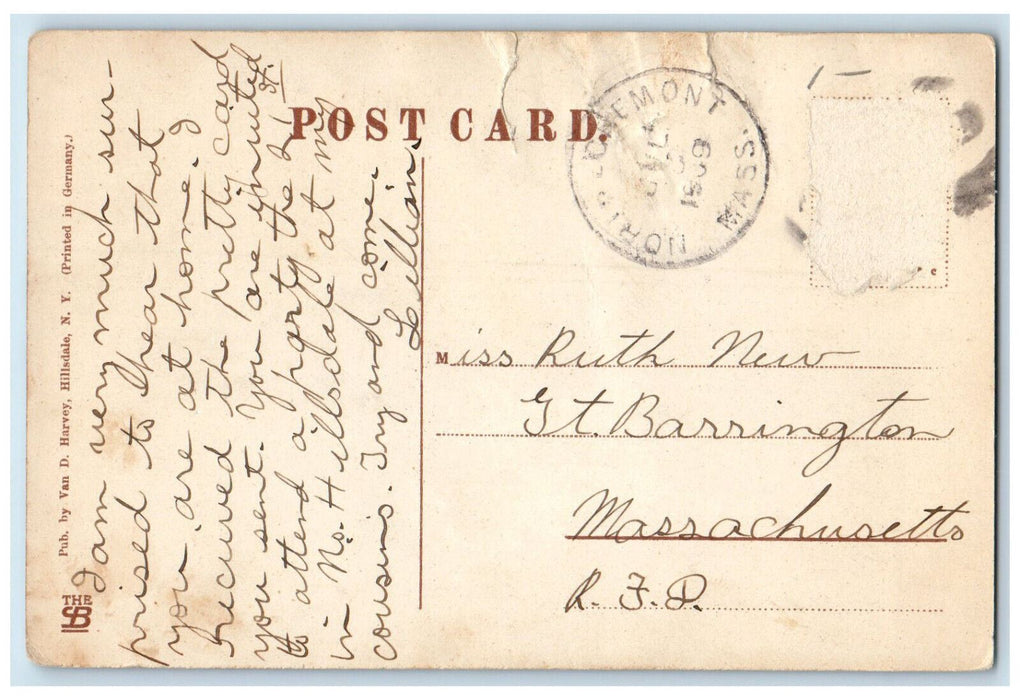 POST CARD.
NORTH EGREMONT
MASS.
JUL
1909
Pub. by Van D. Harvey, Hillsdale, N. Y. (Printed in Germany.)
THE
SB
I am very much sur-
prised to hear that
you are at home. I
received the pretty card
you sent. You are invited
to attend a party the 21 st.
in No. Hillsdale at my
cousins. Try and come.
Lillian
Miss Ruth New
Gt. Barrington
Massachusetts
R. F. D.